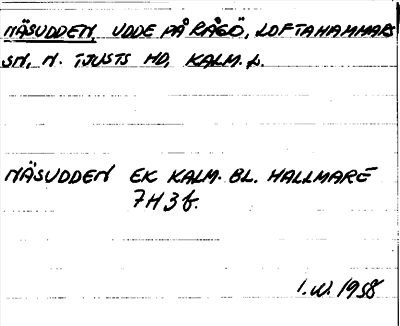 NÄSUDDEN, UDDE PÅ RÅGÖ, LOFTAHAMMARS
SN, N. TJUSTS HD, KALM. L.
NÄSUDDEN EK KALM. BL. HALLMARE
7H3f.
I.W. 1958